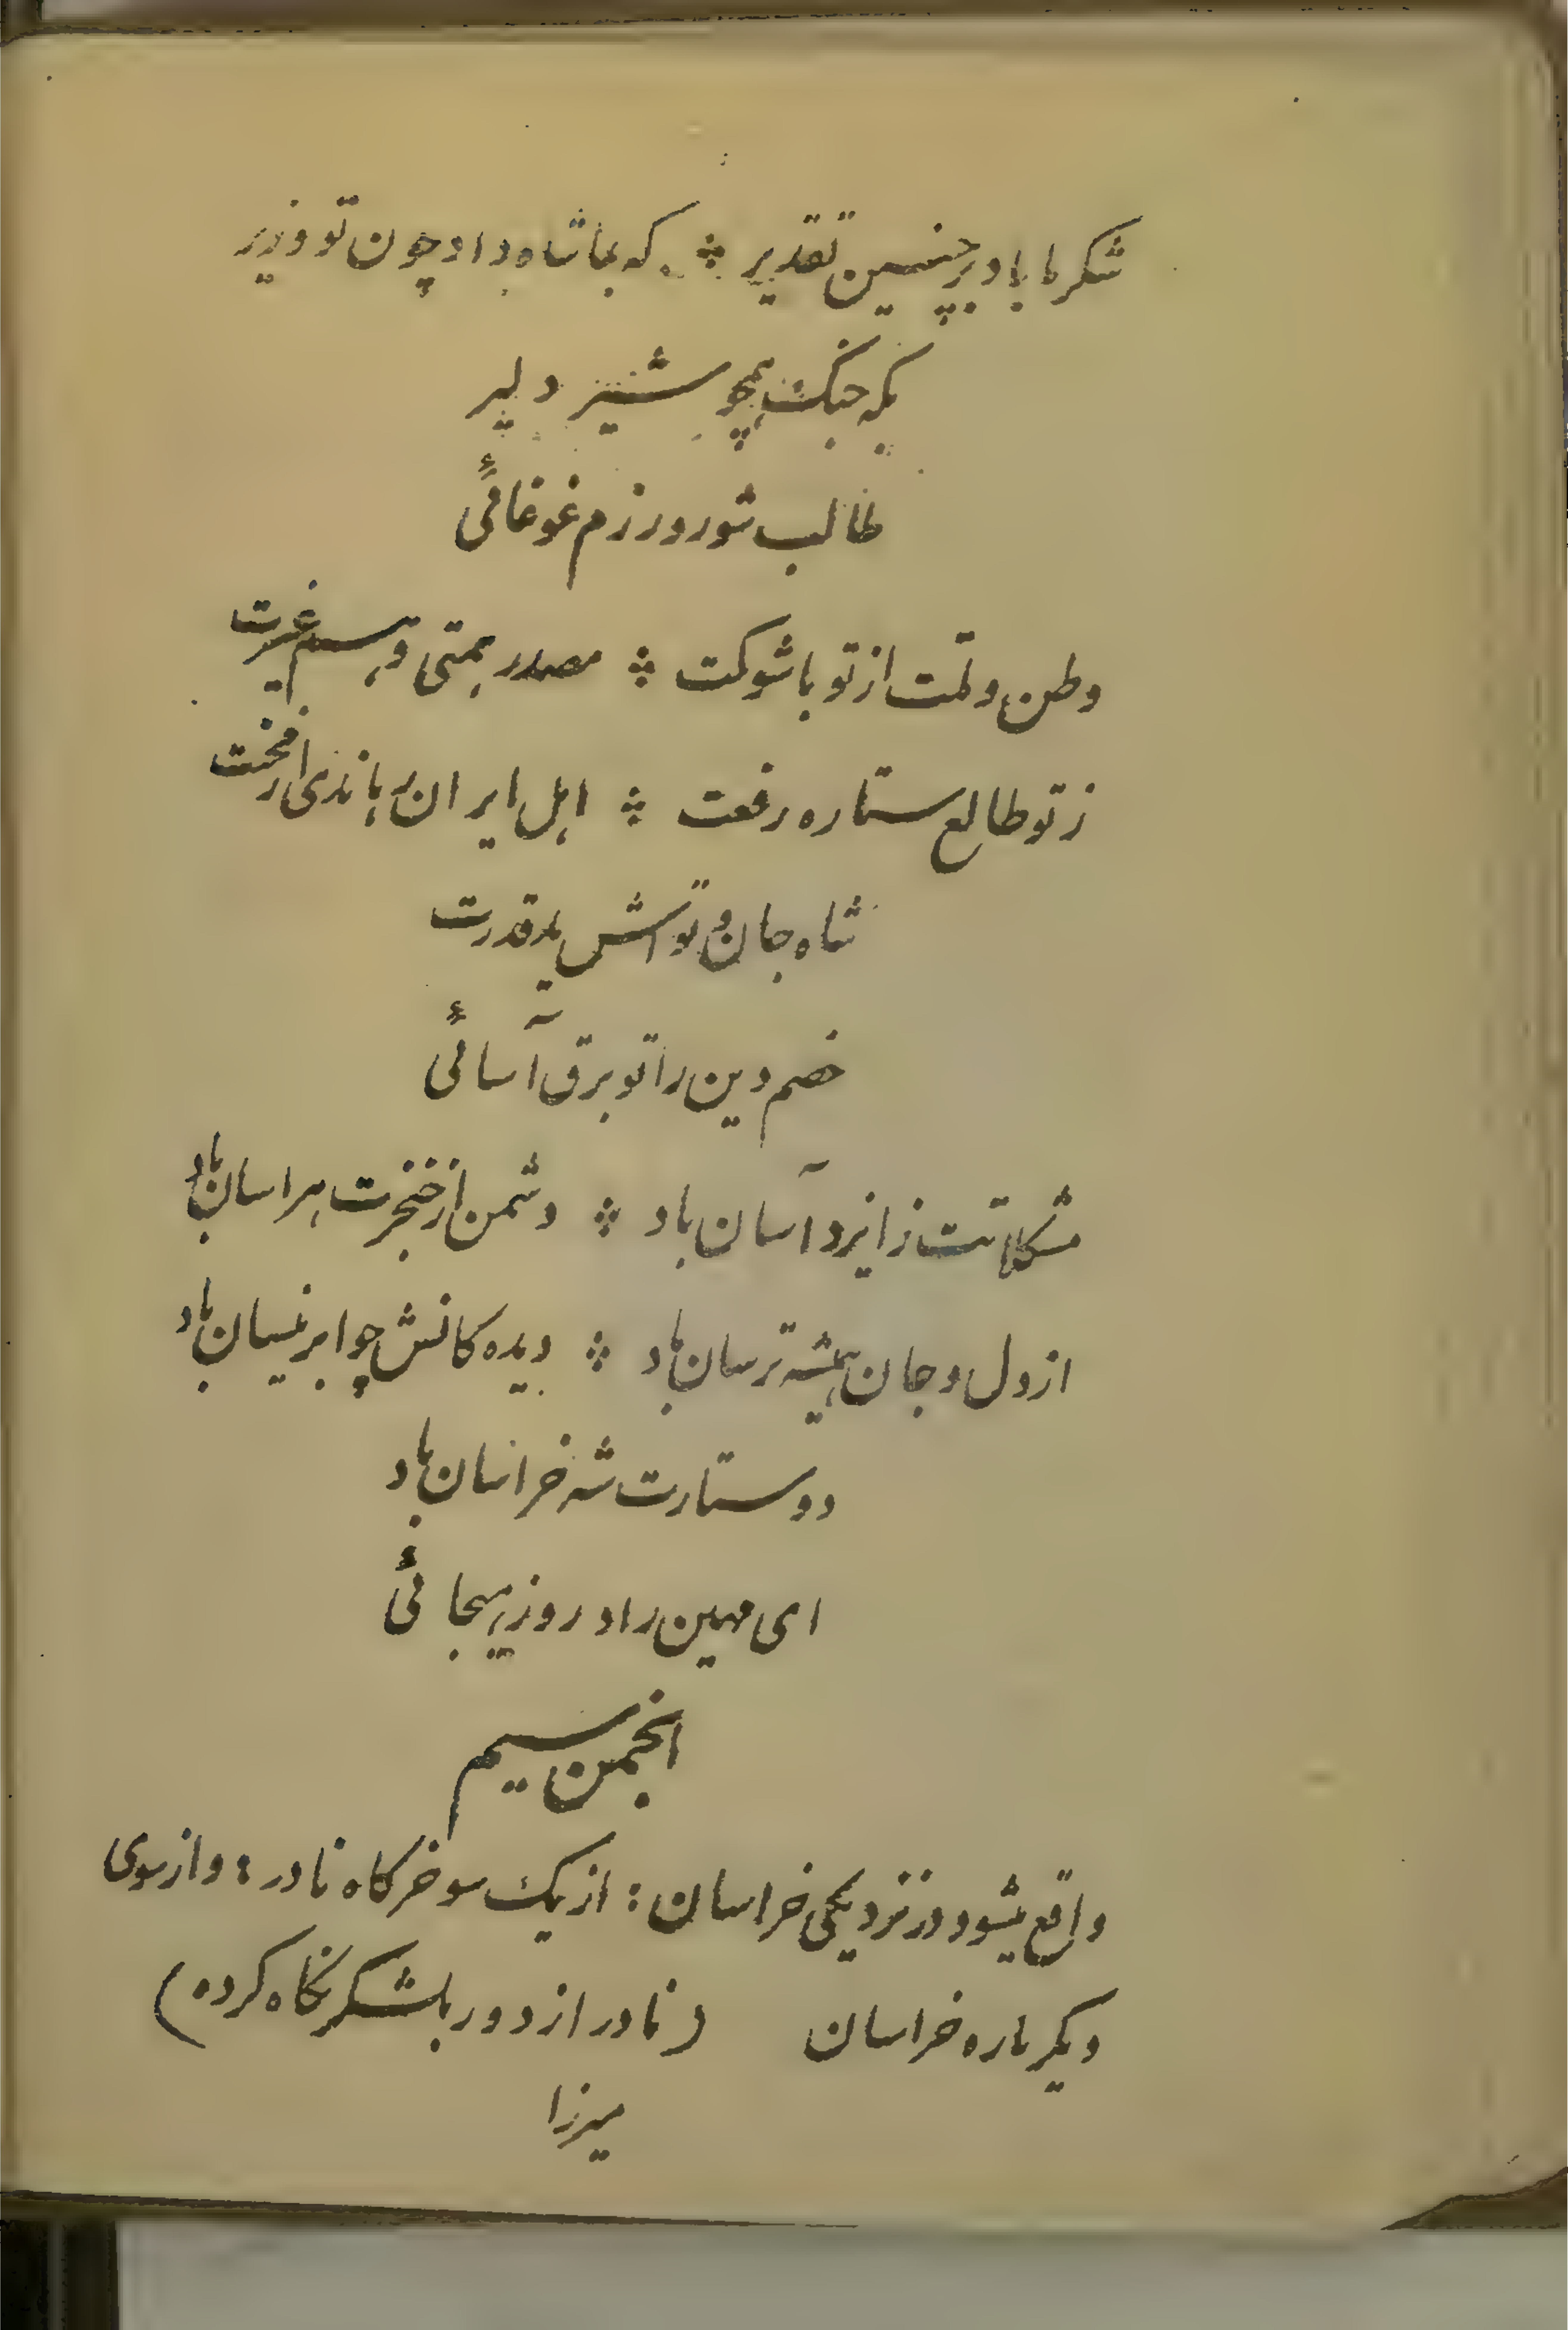 شکرها باد بر چنین تقدیر ❖ که بما شاه داد چون تو وزیر
بگه جنگ همچو شیر دلیر
طالب شور و رزم غوغائی
وطن و ملت از تو با شوکت ❖ مصدر همتی و هم غیرت
ز تو طالع ستاره رفعت ❖ اهل ایران رهاندی از نخبت
شاه جان و تو اش ید قدرت
خصم دین را تو برق آسائی
مشکلاتت ز ایزد آسان باد ❖ دشمن از خنجرت هراسان باد
از دل و جان همیشه ترسان باد ❖ دیده کانش چو ابر نیسان باد
دوستارت شه خراسان باد
ای مهین راد روز هیجائی
انجمن سیم
واقع میشود در نزدیکی خراسان : از یک سو خرکاه نادر : و از سوی
دیکر باره خراسان (نادر از دور بلشکر نکاه کرده)
میرزا